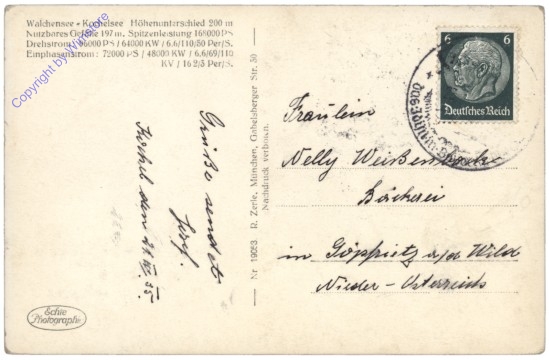 Walchensee - Kochelsee Höhenunterschied 200 m
Nutzbares Gefälle 197 m. Spitzenleistung 168000 PS
Drehstrom: 96000 PS / 64000 KW / 6.6/110/50 Per/S.
Einphasenstrom: 72000 PS / 48000 KW / 6.6/69/110
KV / 16 2/3 Per/S.
Copyright by Winstore
Grüße sendet
Josef.
Kochel den 21. 35.
Nr. 19053. R. Zerle, München, Gabelsberger Str. 50
Nachdruck verboten.
6 6
Deutsches Reich
Fräulein
Nelly
Bäckerei
in Göpfritz a/d Wild
Nieder-Österreich
Echte
Photographie